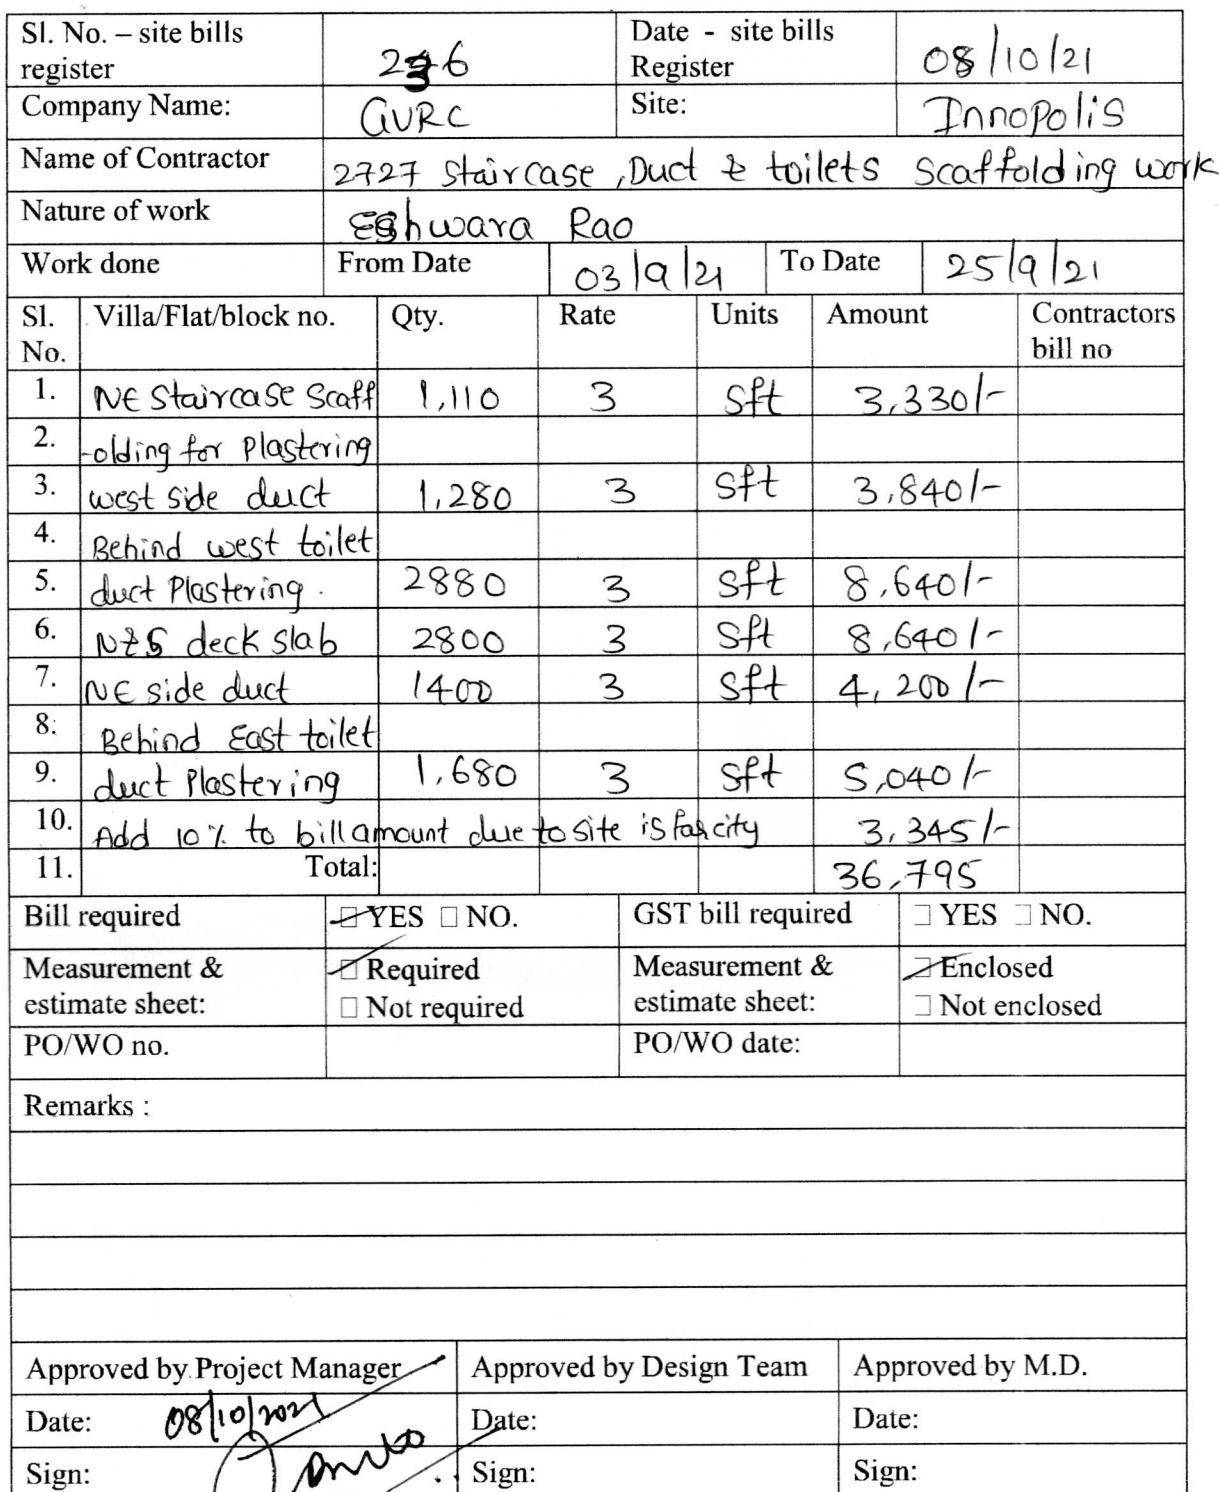 Sl. No. – site bills register 236 Date - site bills Register 08/10/21
Company Name: GVRC Site: Innopolis
Name of Contractor 2727 Staircase, Duct & toilets Scaffolding work
Nature of work Eshwara Rao
Work done From Date 03/9/21 To Date 25/9/21
Sl. No. Villa/Flat/block no. Qty. Rate Units Amount Contractors bill no
1. NE Staircase Scaff 1,110 3 Sft 3,330/-
2. -olding for Plastering
3. west side duct 1,280 3 Sft 3,840/-
4. Behind west toilet
5. duct Plastering. 2880 3 Sft 8,640/-
6. N&S deck slab 2800 3 Sft 8,640/-
7. NE side duct 1400 3 Sft 4,200/-
8: Behind East toilet
9. duct Plastering 1,680 3 Sft 5,040/-
10. Add 10% to bill amount due to site is far city 3,345/-
11. Total: 36,795
Bill required YES NO. GST bill required YES NO.
Measurement & estimate sheet: Required Not required Measurement & estimate sheet: Enclosed Not enclosed
PO/WO no. PO/WO date:
Remarks :
Approved by Project Manager Approved by Design Team Approved by M.D.
Date: 08/10/2021 Date: Date:
Sign: Sign: Sign: